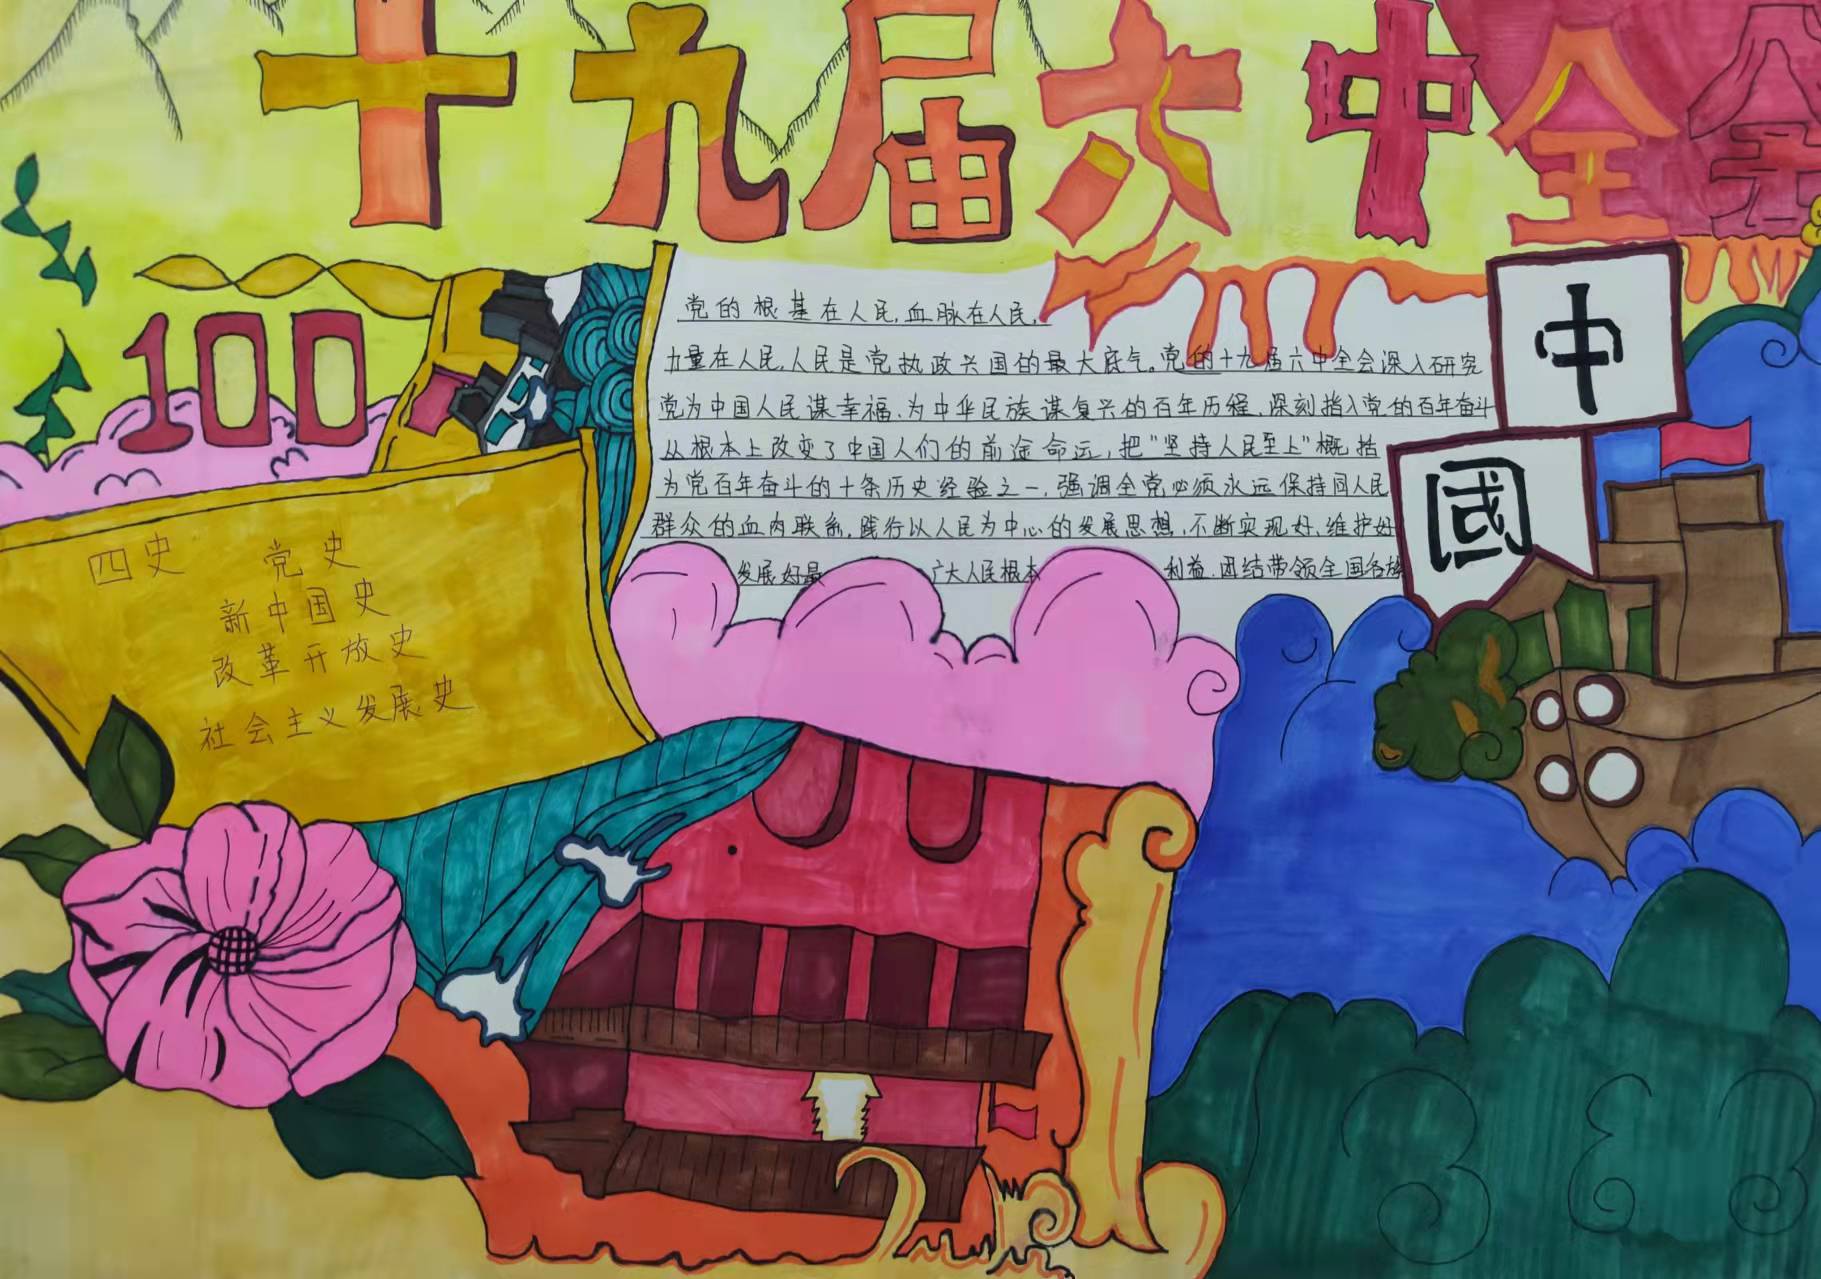 十九届六中全会
100
党的根基在人民,血脉在人民,
力量在人民,人民是党执政兴国的最大底气。党的十九届六中全会深入研究
党为中国人民谋幸福、为中华民族谋复兴的百年历程,深刻指入党的百年奋斗
从根本上改变了中国人们的前途命运,把"坚持人民至上"概括
为党百年奋斗的十条历史经验之一,强调全党必须永远保持同人民
群众的血肉联系,践行以人民为中心的发展思想,不断实现好、维护好
发展好最 广大人民根本 利益,团结带领全国各族
中
國
四史 党史
新中国史
改革开放史
社会主义发展史